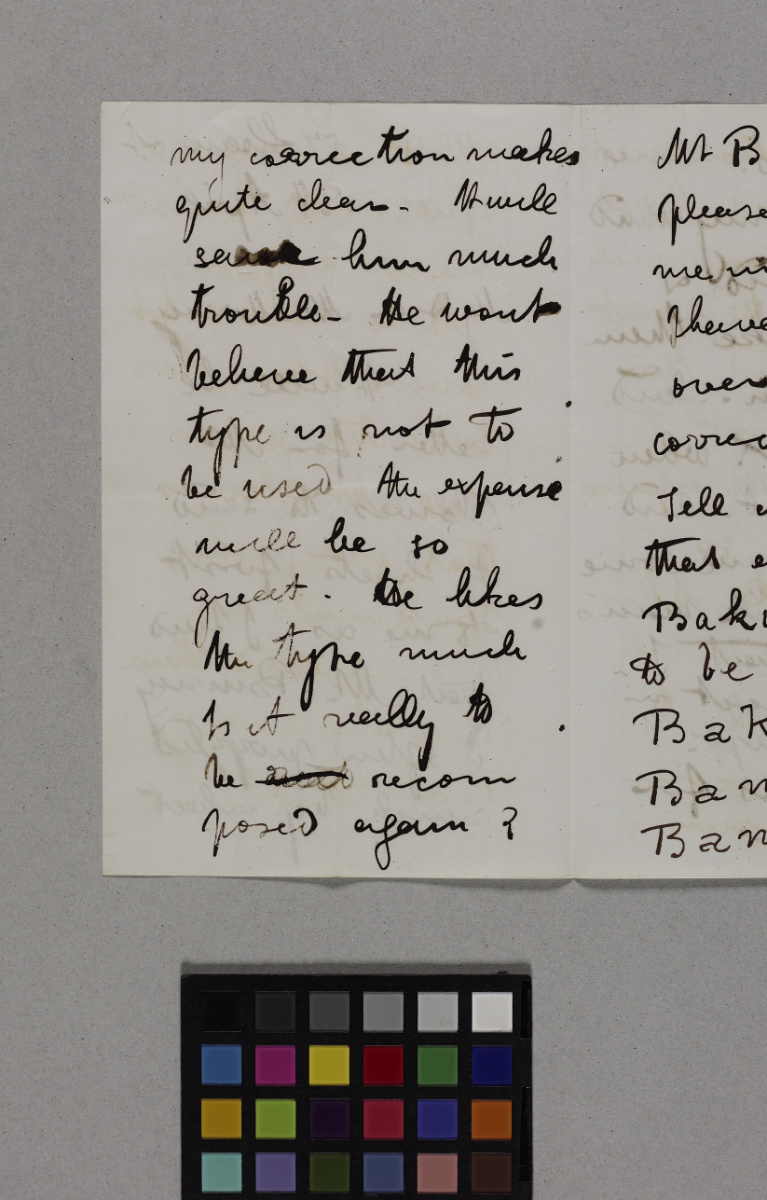 my correction makes
quite clear. It will
save him much
trouble - He wont
believe that this
type is not to
be used the expense
will be so
great. He likes
the type much
Is it really to
be recom
posed again?
Mr B
please
me
I have
over
correc
Tell
that
Bak
to be
Bak
Ban
Ban